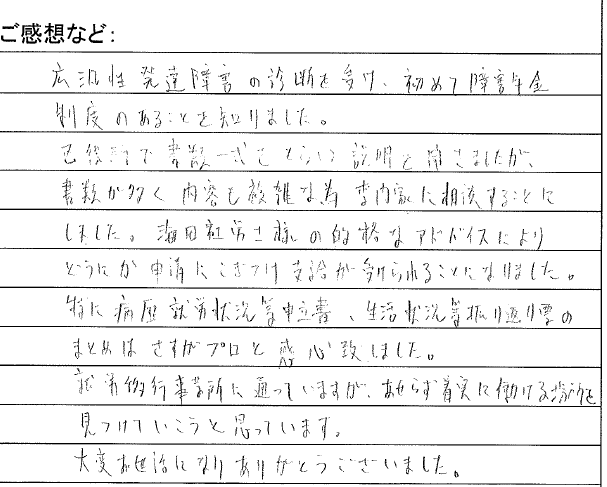 ご感想など：
広汎性発達障害の診断を受け、初めて障害年金
制度のあることを知りました。
書類一式をもらい説明を聞きましたが、
書類が多く内容も複雑な為専門家に相談することに
しました。海田社労士様の的格なアドバイスにより
どうにか申請にこぎつけ支給が受けられることになりました。
特に病歴就労状況等申立書、生活状況等振り返り票の
まとめはさすがプロと感心致しました。
就労移行事業所に通っていますが、あせらず着実に働ける場所を
見つけていこうと思っています。
大変お世話になりありがとうございました。